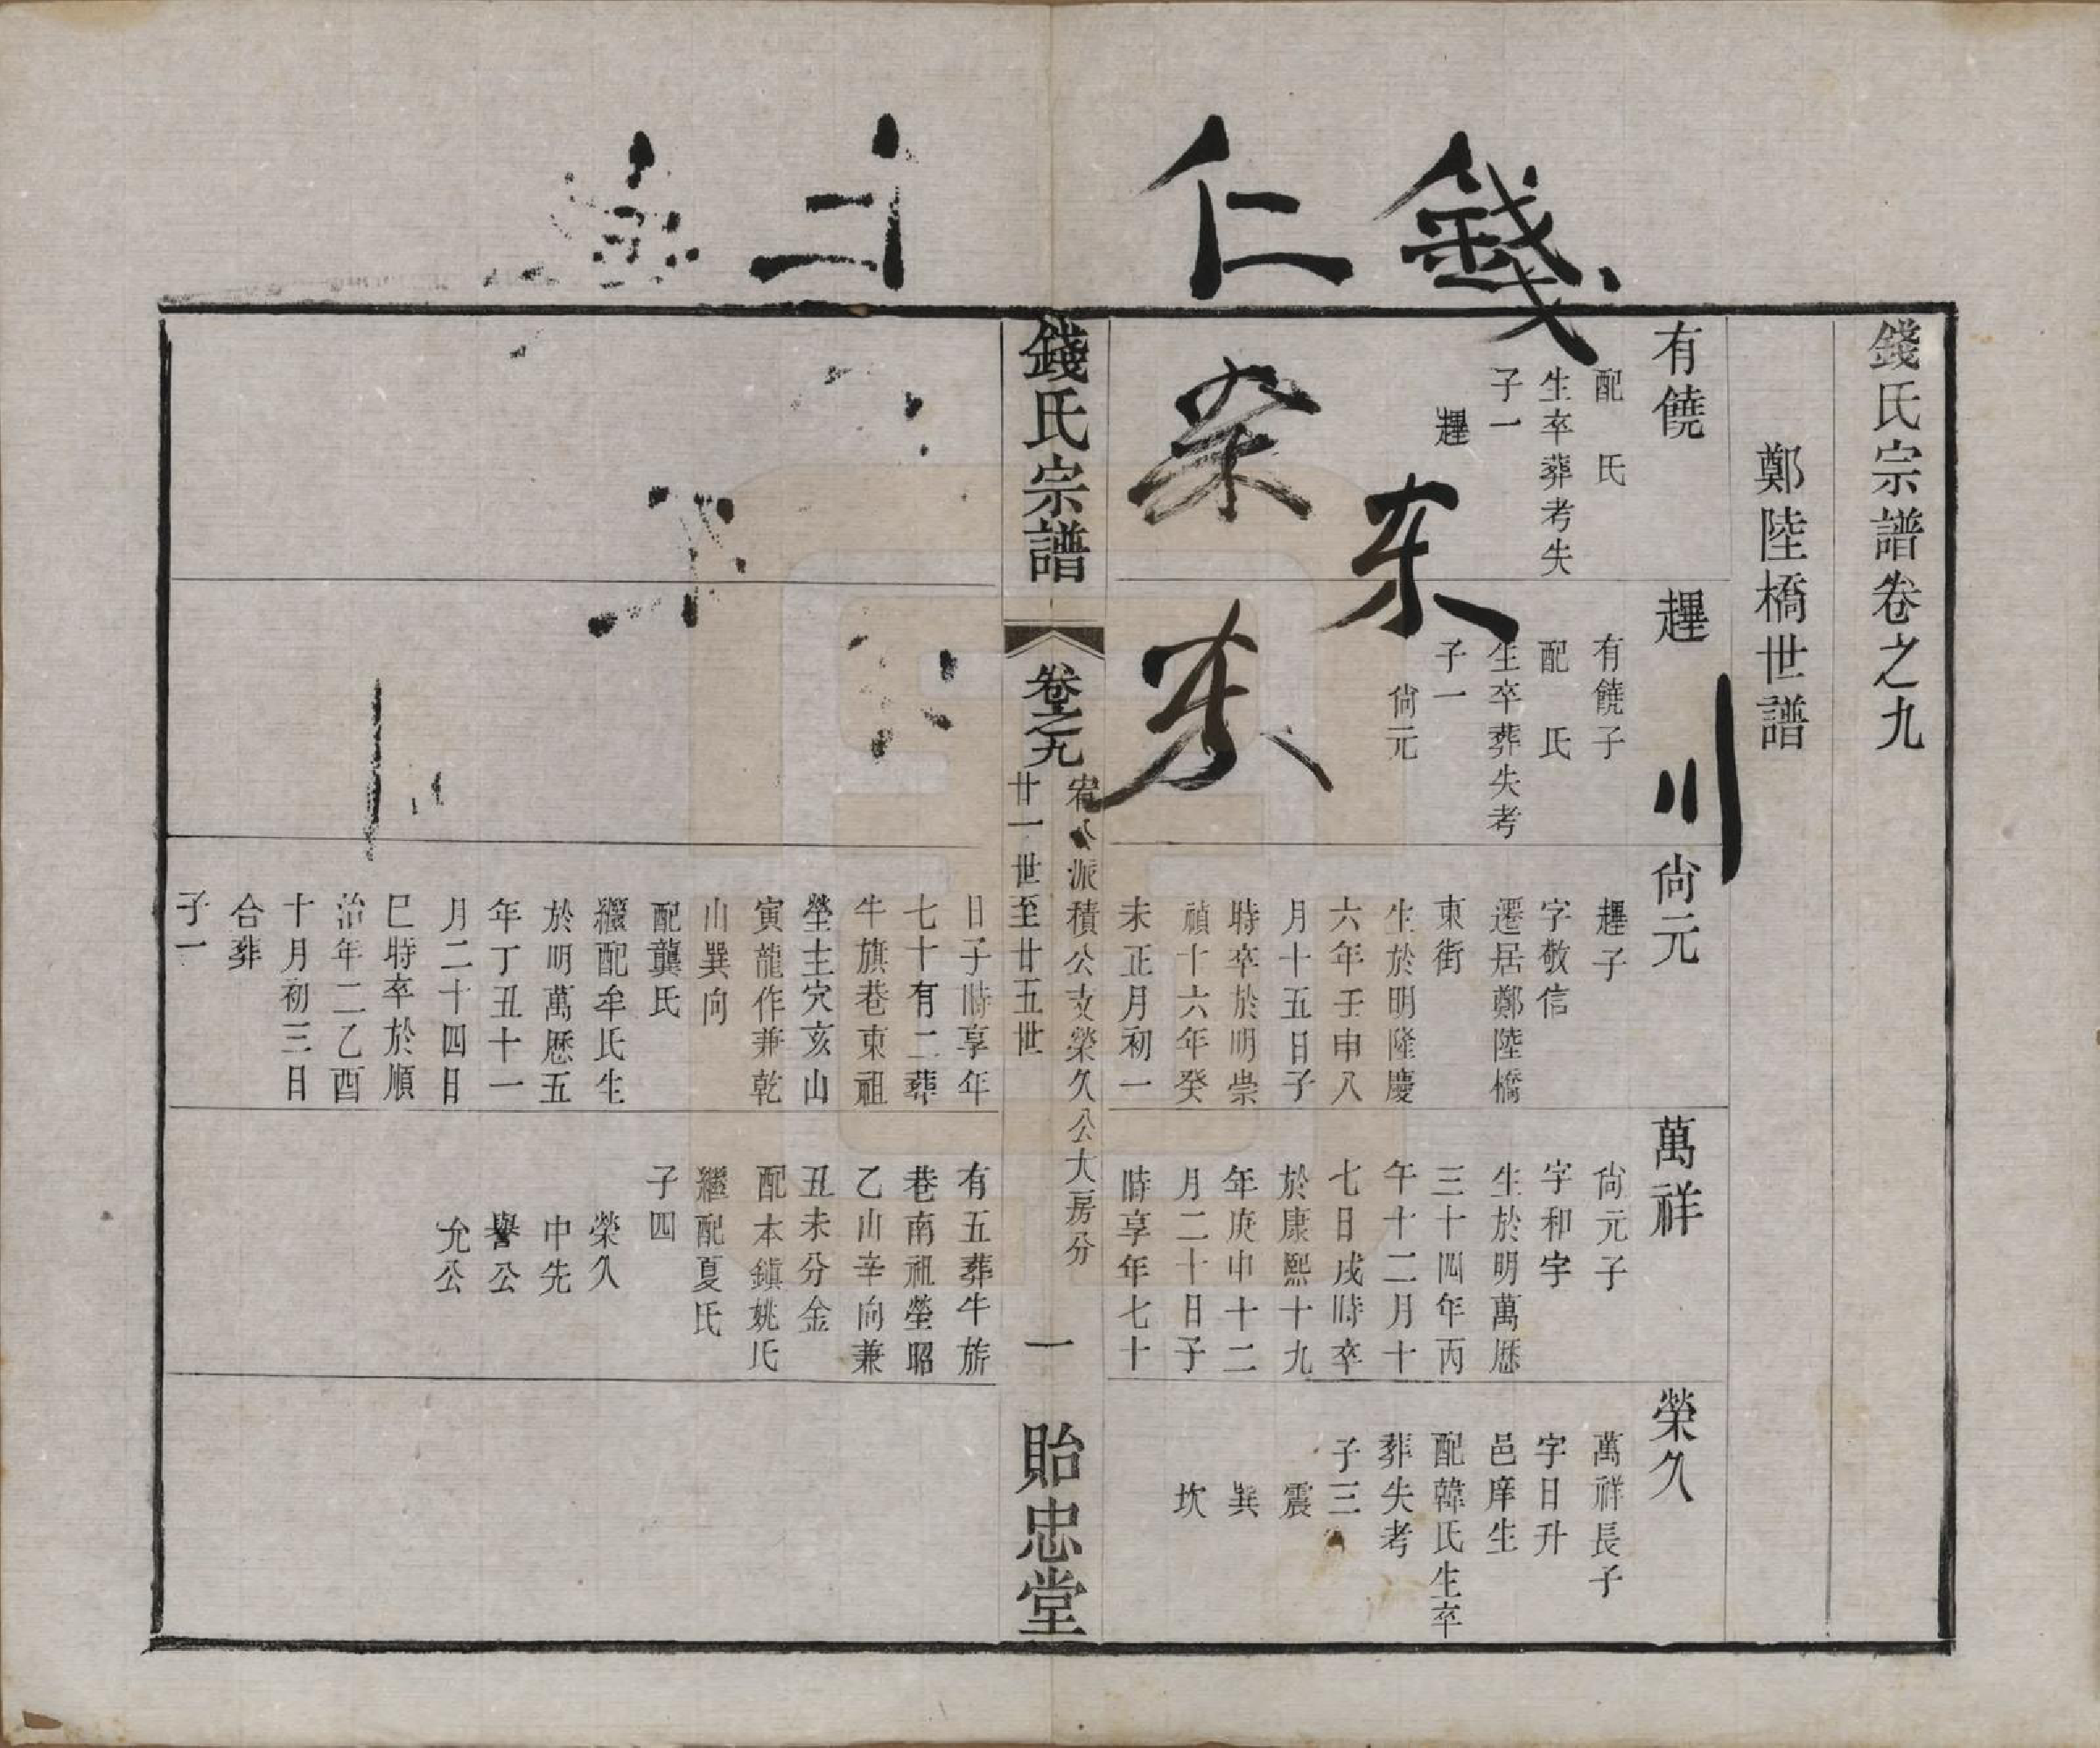 錢仁
錢氏宗譜卷之九
鄭陸橋世譜
有饒
配　氏
生卒葬考失
子一
趯
趯
有饒子
配　氏
生卒葬失考
子一
尙元
尙元
趯子
字敬信
遷居鄭陸橋
東街
生於明隆慶
六年壬申八
月十五日子
時卒於明崇
禎十六年癸
未正月初一
日子時享年
七十有二葬
牛旗巷東祖
塋主穴亥山
寅龍作兼乾
山巽向
配龔氏
繼配牟氏生
於明萬歷五
年丁丑十一
月二十四日
巳時卒於順
治年二乙酉
十月初三日
合葬
子一
萬祥
尙元子
字和宇
生於明萬歷
三十四年丙
午十二月十
七日戌時卒
於康熙十九
年庚申十二
月二十日子
時享年七十
有五葬牛旂
巷南祖塋昭
乙山辛向兼
丑未分金
配本鎭姚氏
繼配夏氏
子四
榮久
中先
譽公
允公
榮久
萬祥長子
字日升
邑庠生
配韓氏生卒
葬失考
子三
震
巽
坎
錢氏宗譜
卷之九
派積公支榮久公大房分
廿一世至廿五世
一
貽忠堂